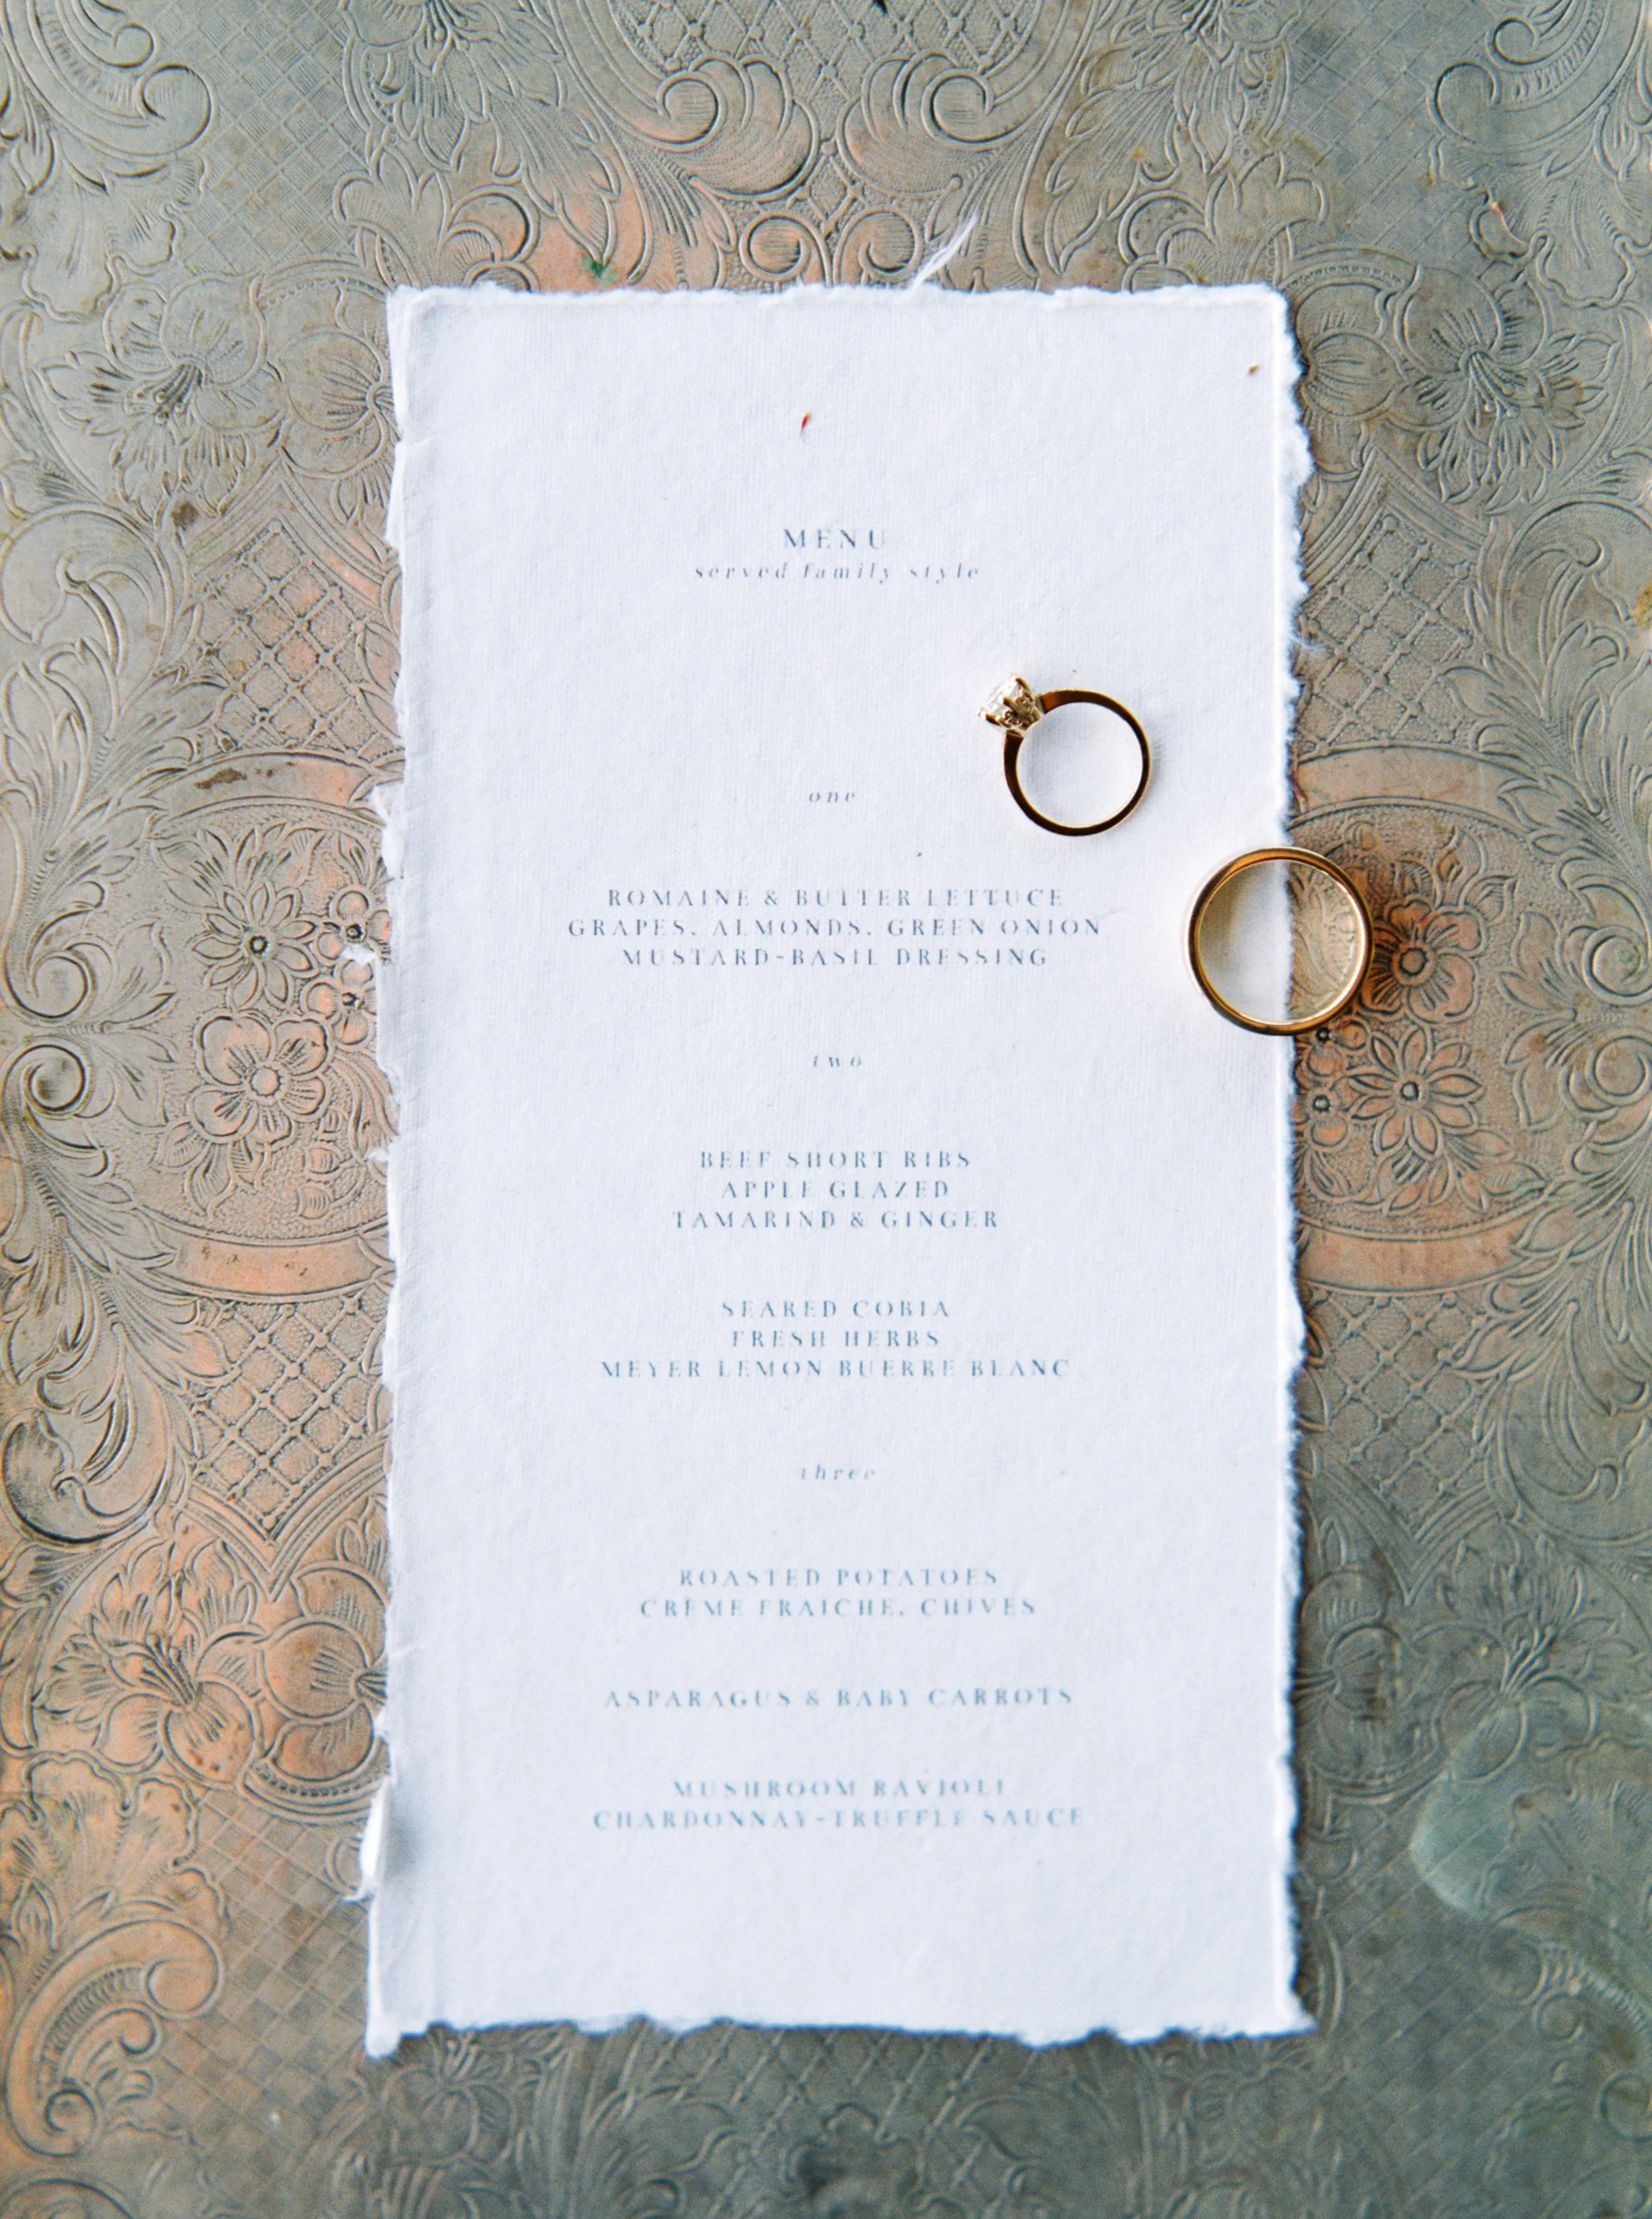 MENU
served family style
one
ROMAINE & BUTTER LETTUCE
GRAPES, ALMONDS, GREEN ONION
MUSTARD-BASIL DRESSING
two
BEEF SHORT RIBS
APPLE GLAZED
TAMARIND & GINGER
SEARED COBIA
FRESH HERBS
MEYER LEMON BUERRE BLANC
three
ROASTED POTATOES
CREME FRAICHE, CHIVES
ASPARAGUS & BABY CARROTS
MUSHROOM RAVIOLI
CHARDONNAY-TRUFFLE SAUCE